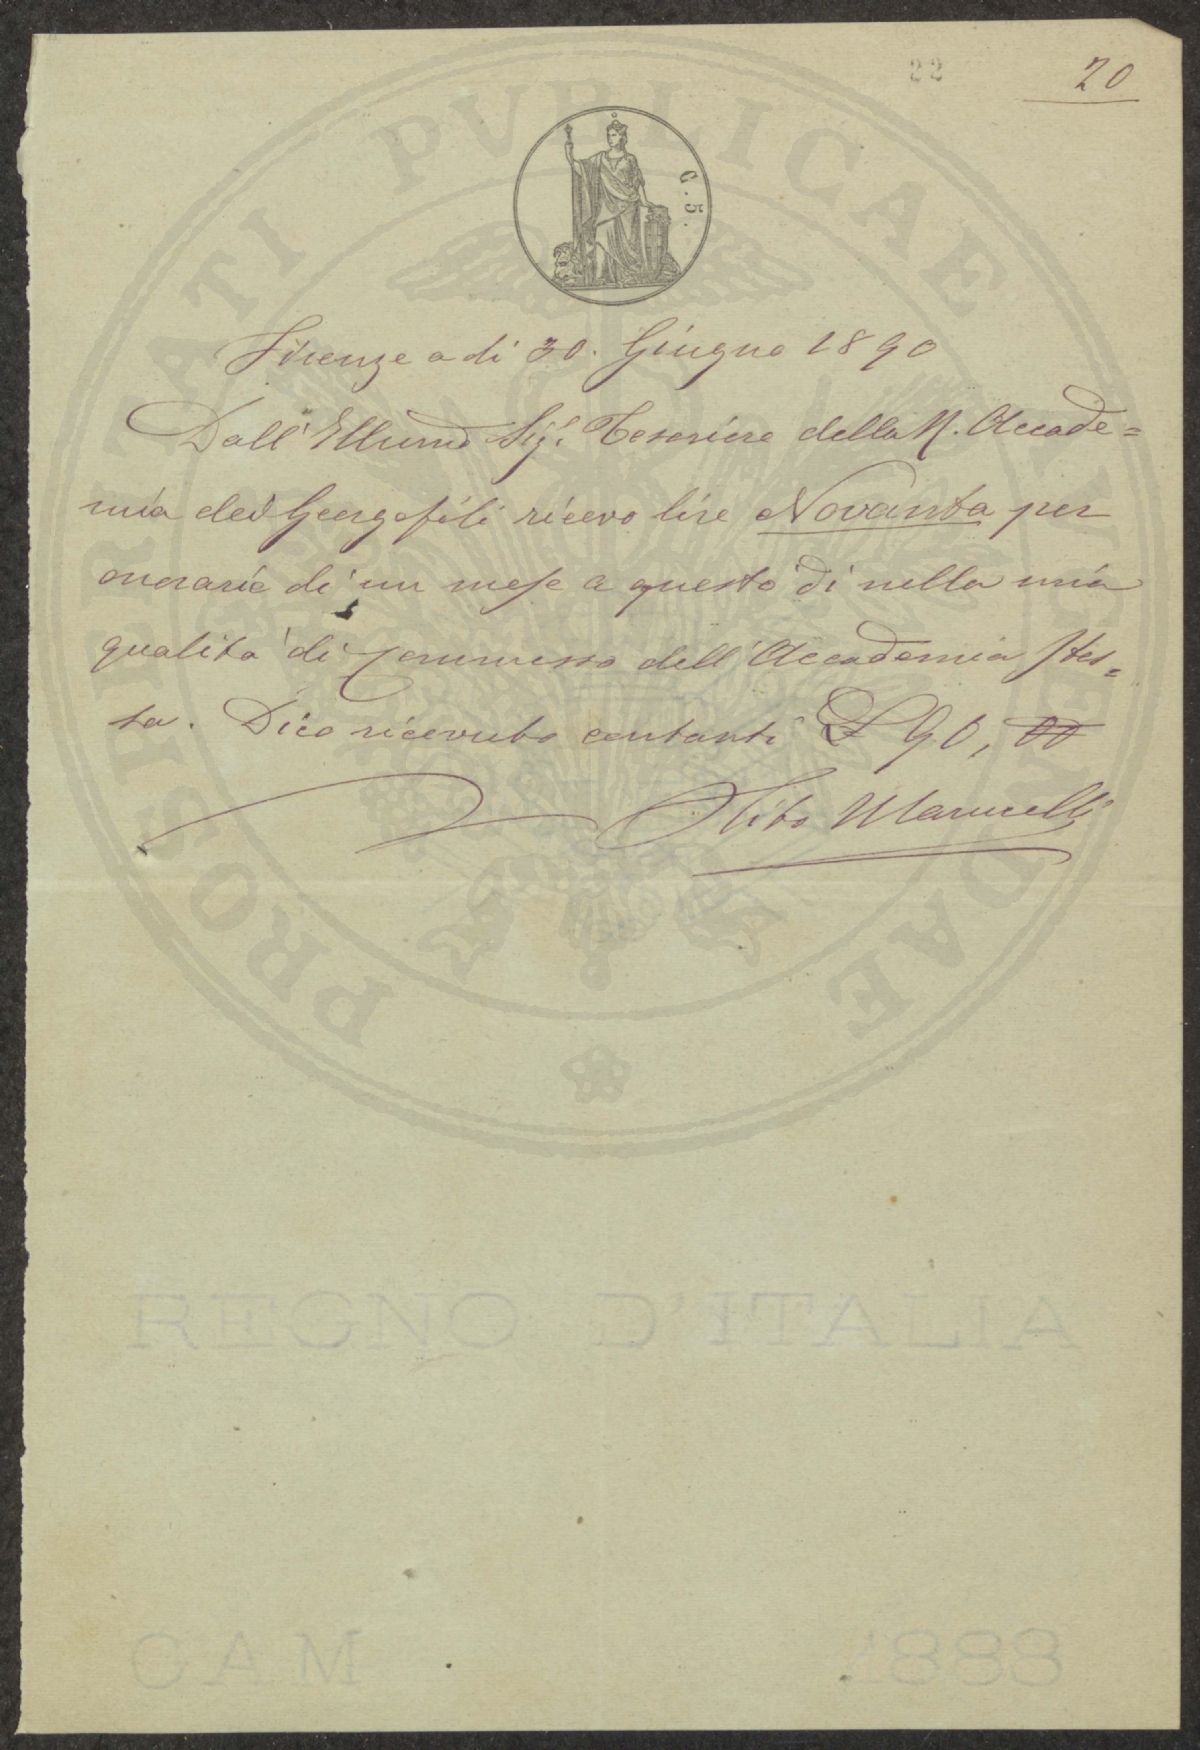 22
20
C. 5.
PROSPERITATI PVBLICAE AVGENDAE
Firenze a dì 30. Giugno 1890
Dall' Illumo Sigr Tesoriere della R. Accade=
mia dei Georgofili ricevo lire Novanta per
onorario di un mese a questo dì nella mia
qualità di Commesso dell' Accademia stes=
sa. Dico ricevuto contanti £ 90, 00
Tito Marucelli
REGNO D'ITALIA
1888